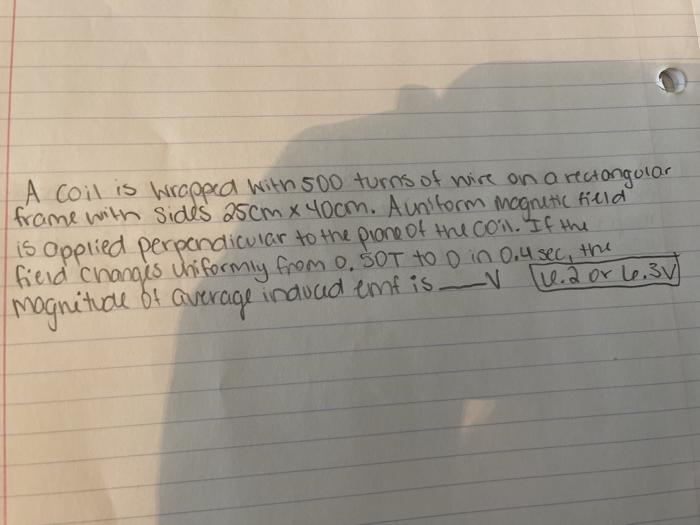 A coil is wrapped with 500 turns of wire on a rectangular
frame with sides 25cm x 40cm. A uniform magnetic field
is applied perpendicular to the plane of the coil. If the
field changes uniformly from 0.50T to 0 in 0.4 sec, the
magnitude of average induced emf is ___V 6.2 or 6.3V